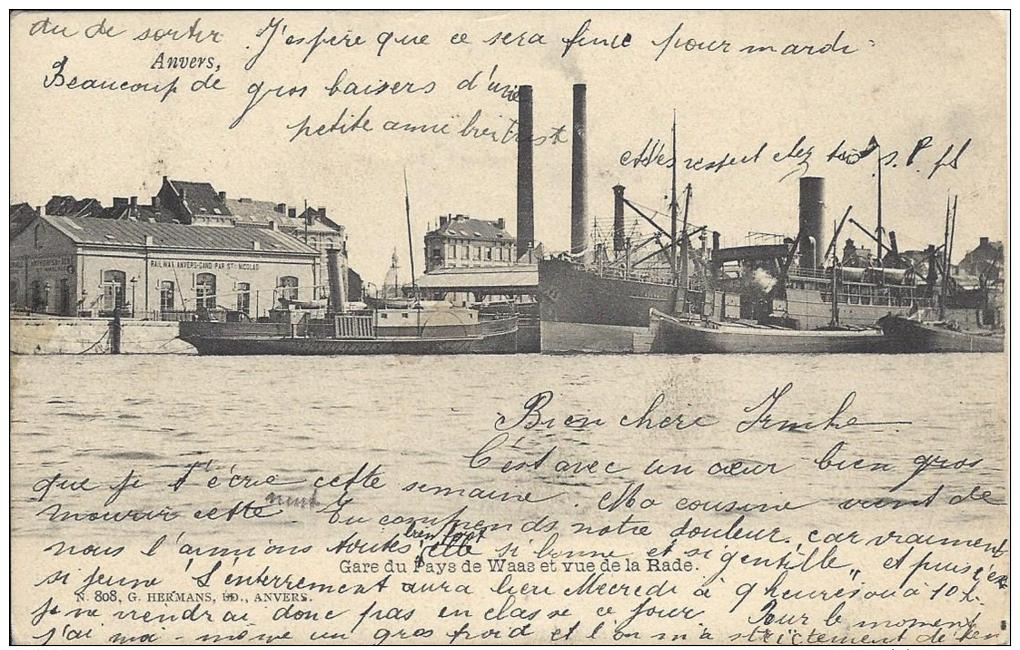 du de sortir. J'espère que ce sera finie pour mardi
Anvers,
Beaucoup de gros baisers d'une
petite amie bien triste
Mes respect chez toi s. P. fl
RAILWAY ANVERS-GAND PAR ST NICOLAS
Bien chère Irmke
C'est avec un cœur bien gros
que je t'écrie cette semaine. Ma cousine vient de
mourir cette nuit Tu comprends notre douleur. car vraiment
nous l'aimions toutes bien fort elle si bonne et si gentille, et puis
Gare du Pays de Waas et vue de la Rade.
si jeune L'enterrement aura lieu Mecredi à 9 heures ou à 10 h.
N. 808, G. HERMANS, ÉD., ANVERS.
je ne viendrai donc pas en classe ce jour. Pour le moment
j'ai moi-même un gros froid et l'on m'a strictement défen